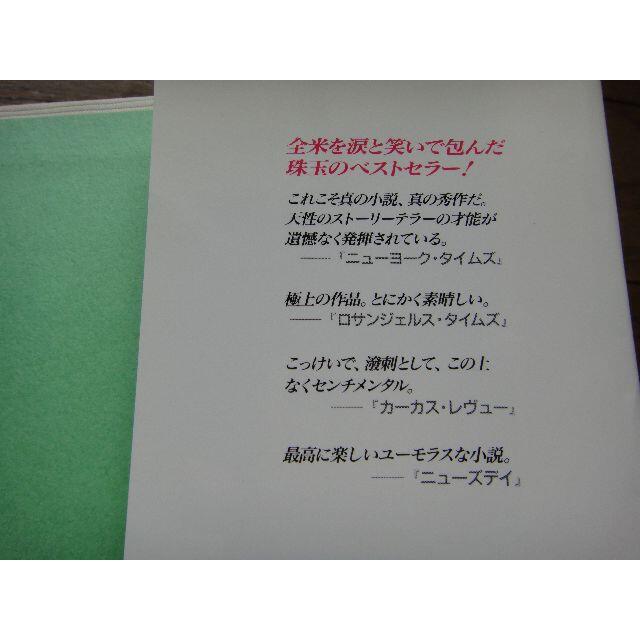 全米を涙と笑いで包んだ
珠玉のベストセラー!
これこそ真の小説、真の秀作だ。
天性のストーリーテラーの才能が
遺憾なく発揮されている。
——『ニューヨーク・タイムズ』
極上の作品。とにかく素晴しい。
——『ロサンジェルス・タイムズ』
こっけいで、潑剌として、この上
なくセンチメンタル。
——『カーカス・レヴュー』
最高に楽しいユーモラスな小説。
——『ニューズデイ』